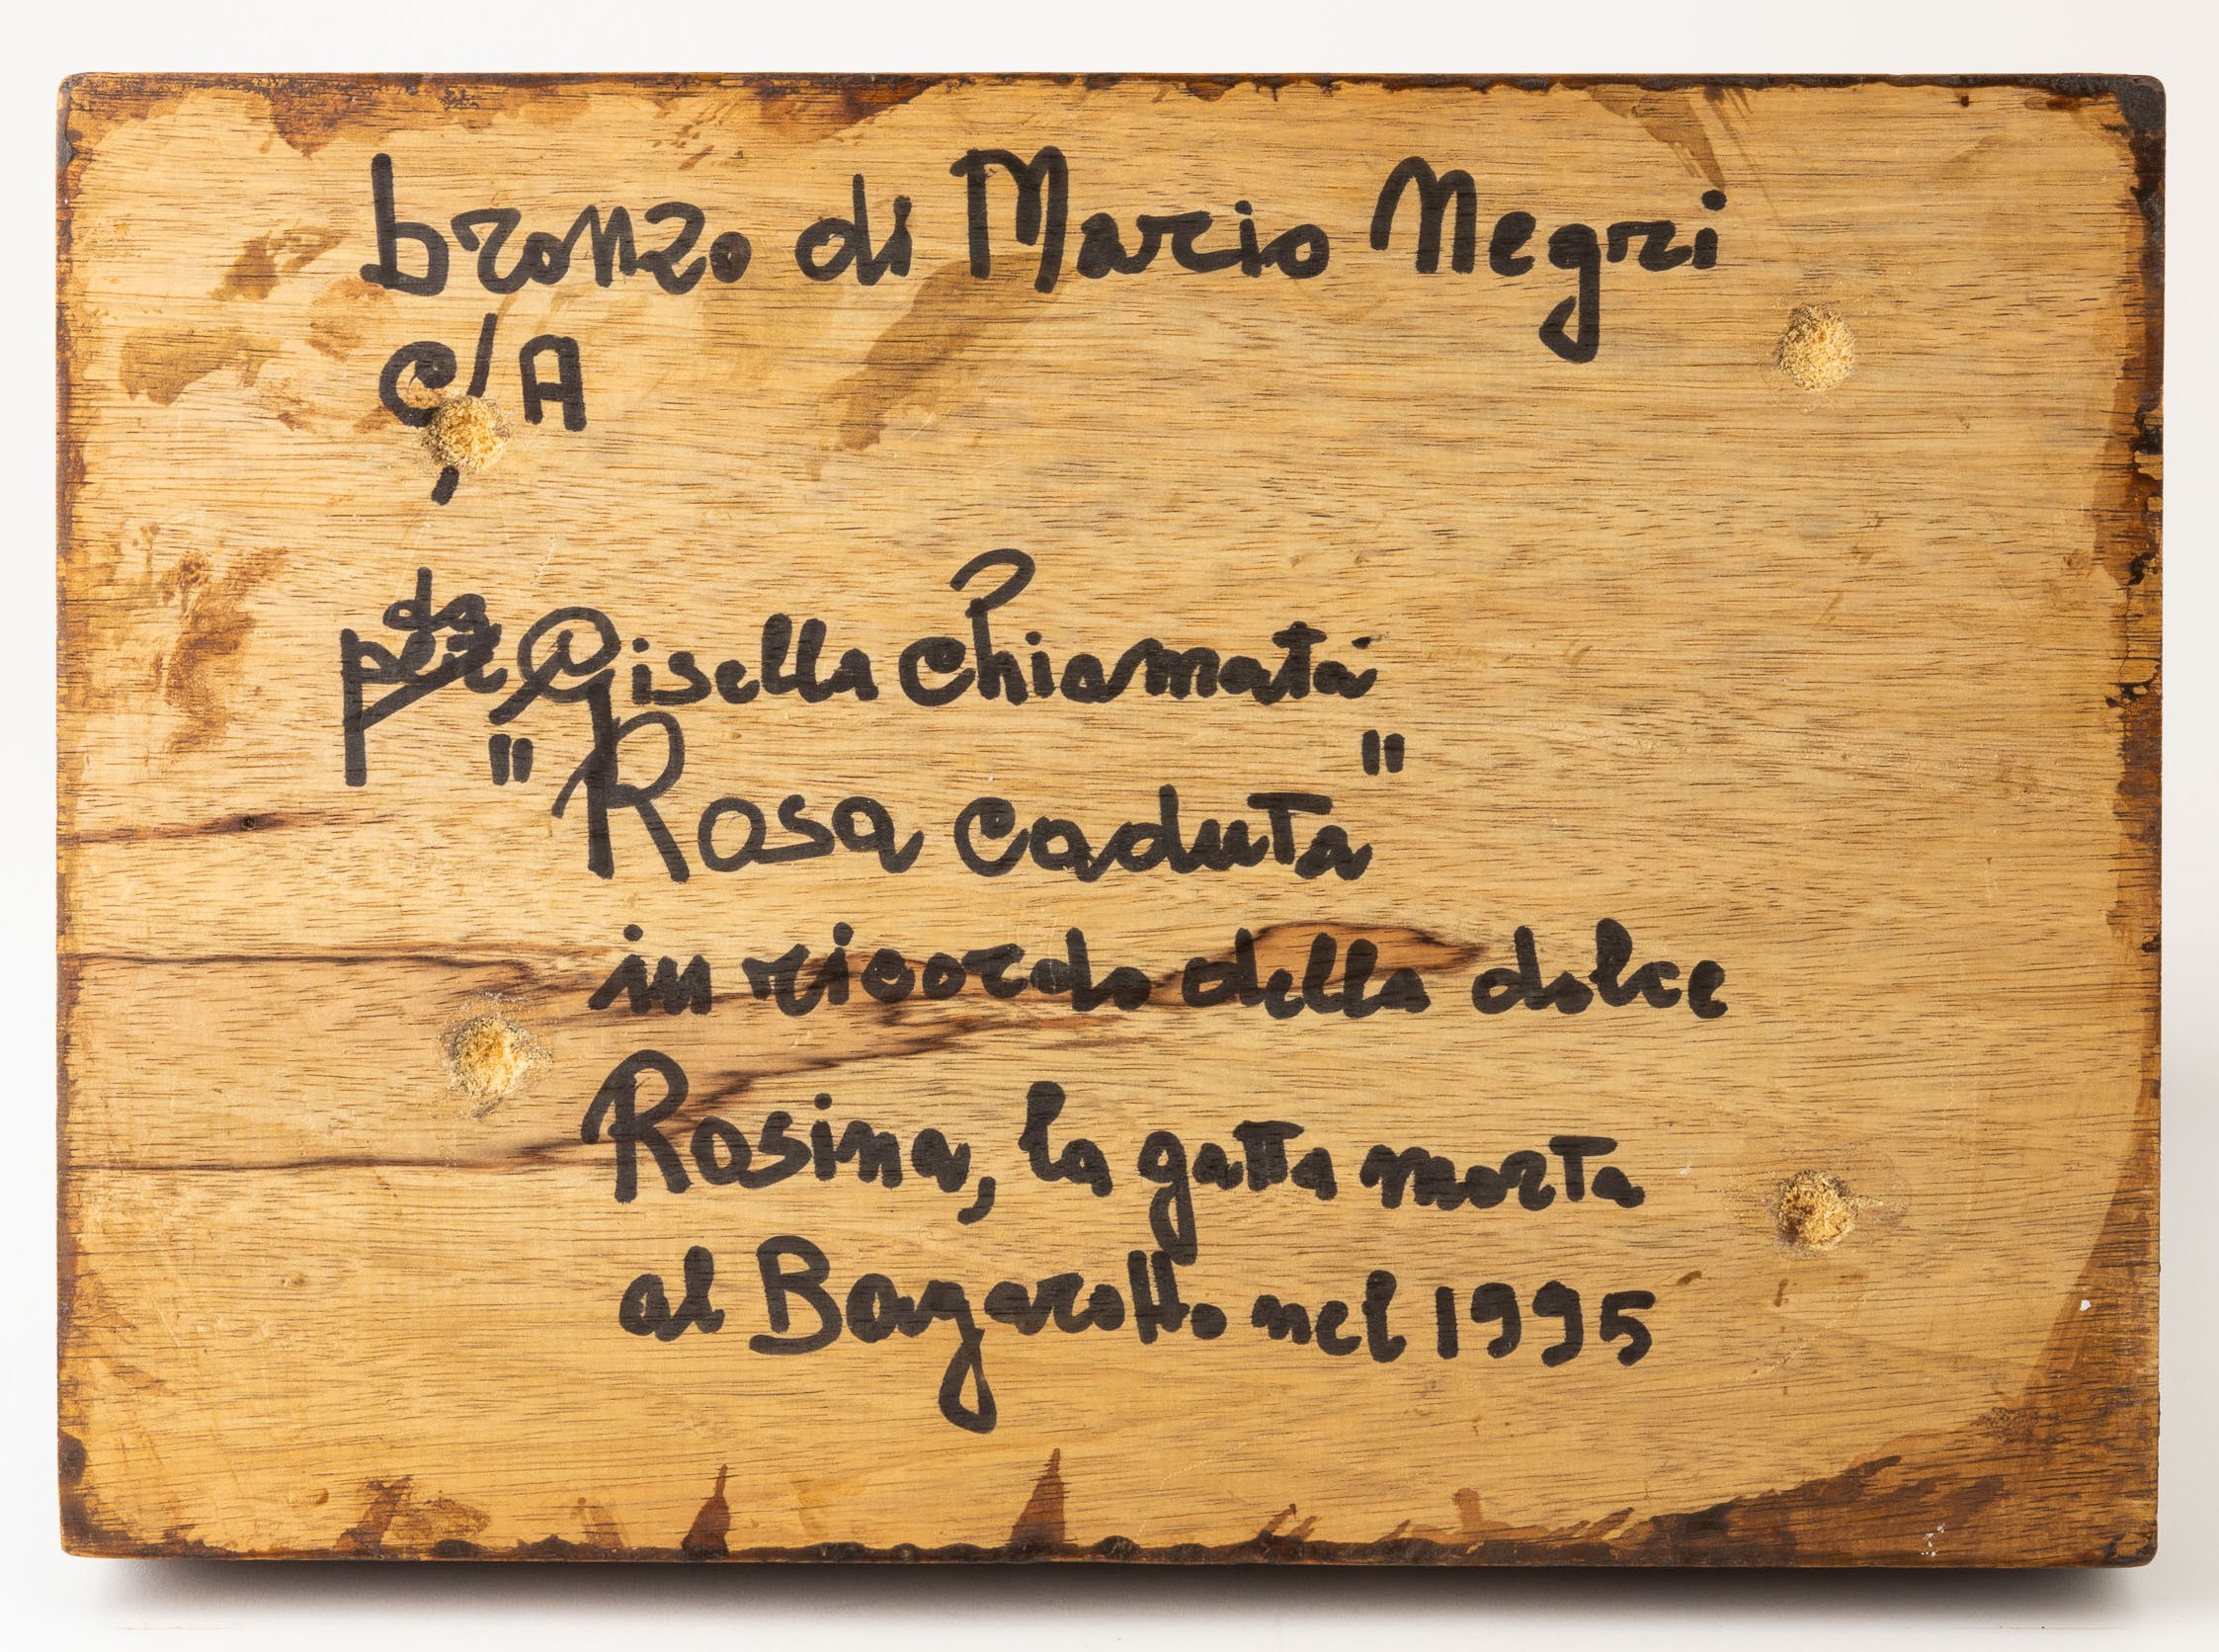 bronzo di Mario Negri
c/A
da
per Gisella chiamata
"Rosa caduta"
in ricordo della dolce
Rosina, la gatta morta
al Bagarotto nel 1995